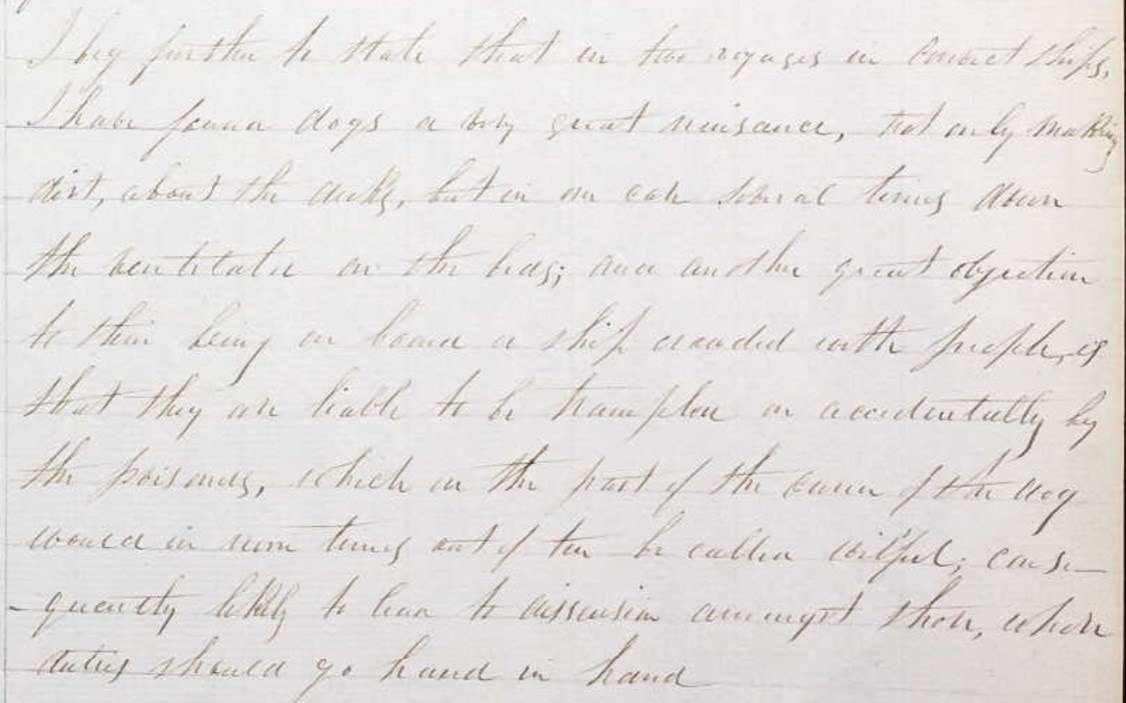 I beg further to state that in two voyages in Convict Ships,
I have found dogs a very great nuisance, not only making
dirt, about the decks, but in one case several times down
the ventilator on the beds; and another great objection
to their being on board a ship crowded with people, is
that they are liable to be trampled on accidentally by
the prisoners, which on the part of the owner of the dog
would in nine times out of ten be called wilful; conse-
quently likely to lead to dissension amongst those, whose
duties should go hand in hand